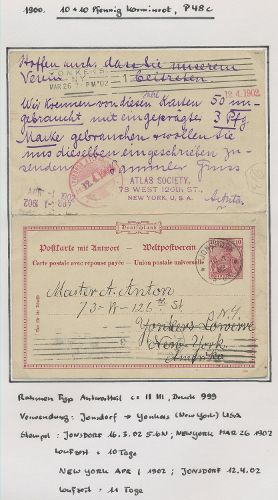 1900. 10 + 10 Pfennig Karminrot, P48c
Hoffen auch, dass Sie unserem
Verein beitreten
YONKERS
MAR 26 7 PM '02
1
12.4.1902
Wir koennen von diesen Karten 50 un-
gebraucht mit eingeprägter 3 Pfg
Marke gebrauchen & wollen Sie
uns dieselben eingeschrieben zu-
senden. Sammler Gruss
12.4.02
ATLAS SOCIETY,
73 WEST 126th ST.,
NEW YORK, U. S. A.
1902
Deutschland
Postkarte mit Antwort – Weltpostverein
Carte postale avec réponse payée – Union postale universelle
10
JONSDORF
Master A. Anton
73-W-126th St
N.Y.
Yonkers
New York
Amerika
Rahmen Typ Antwortteil c = II III, Druck 999
Verwendung: Jonsdorf → Yonkers (New York) USA
Stempel: JONSDORF 16.3.02 5-6N; NEWYORK MAR 26 1902
Laufzeit = 10 Tage
NEW YORK APR 1 1902; JONSDORF 12.4.02
Laufzeit = 11 Tage